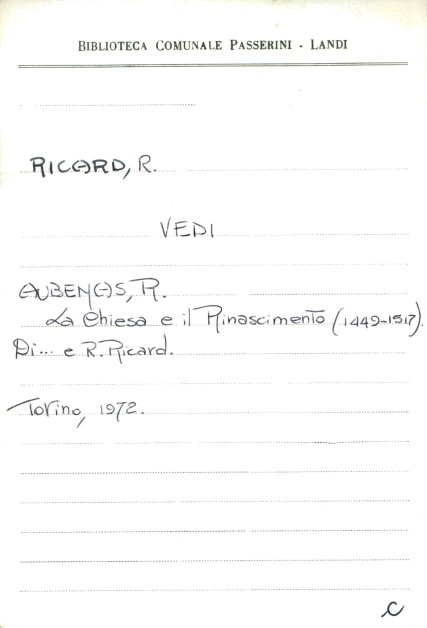 BIBLIOTECA COMUNALE PASSERINI - LANDI
RICARD, R.
VEDI
AUBENAS, R.
La Chiesa e il Rinascimento (1449-1517).
Di... e R. Ricard.
Torino, 1972.
C